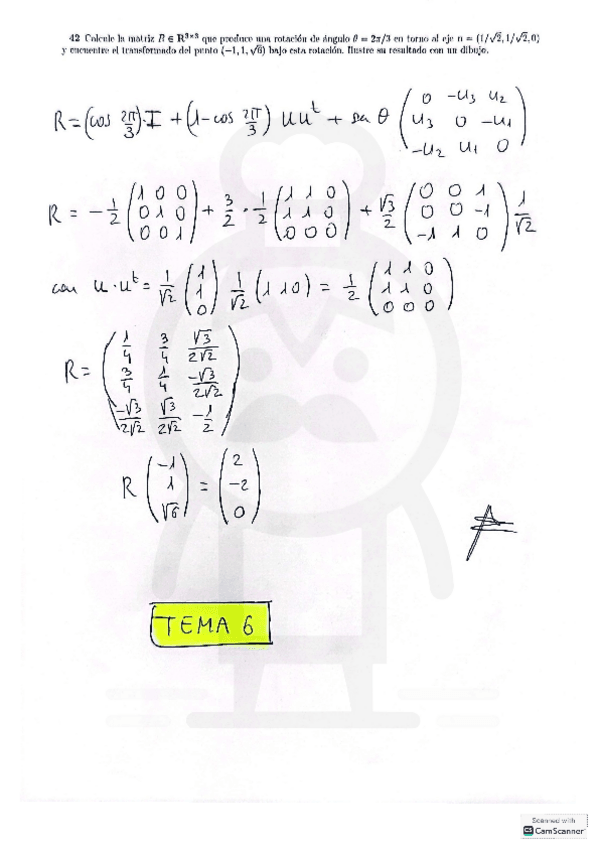 42 Calcule la matriz R ∈ R³ˣ³ que produce una rotación de ángulo θ = 2π/3 en torno al eje n = (1/√2, 1/√2, 0)
y encuentre el transformado del punto (−1, 1, √6) bajo esta rotación. Ilustre su resultado con un dibujo.
R = (cos 2π/3)·I + (1 - cos 2π/3) u u^t + sen θ (0 -u3 u2; u3 0 -u1; -u2 u1 0)
R = -1/2 (1 0 0; 0 1 0; 0 0 1) + 3/2 · 1/2 (1 1 0; 1 1 0; 0 0 0) + √3/2 (0 0 1; 0 0 -1; -1 1 0) 1/√2
con u·u^t = 1/√2 (1; 1; 0) 1/√2 (1 1 0) = 1/2 (1 1 0; 1 1 0; 0 0 0)
R = (1/4 3/4 √3/2√2; 3/4 1/4 -√3/2√2; -√3/2√2 √3/2√2 -1/2)
R (-1; 1; √6) = (2; -2; 0)
TEMA 6
Scanned with
CS CamScanner